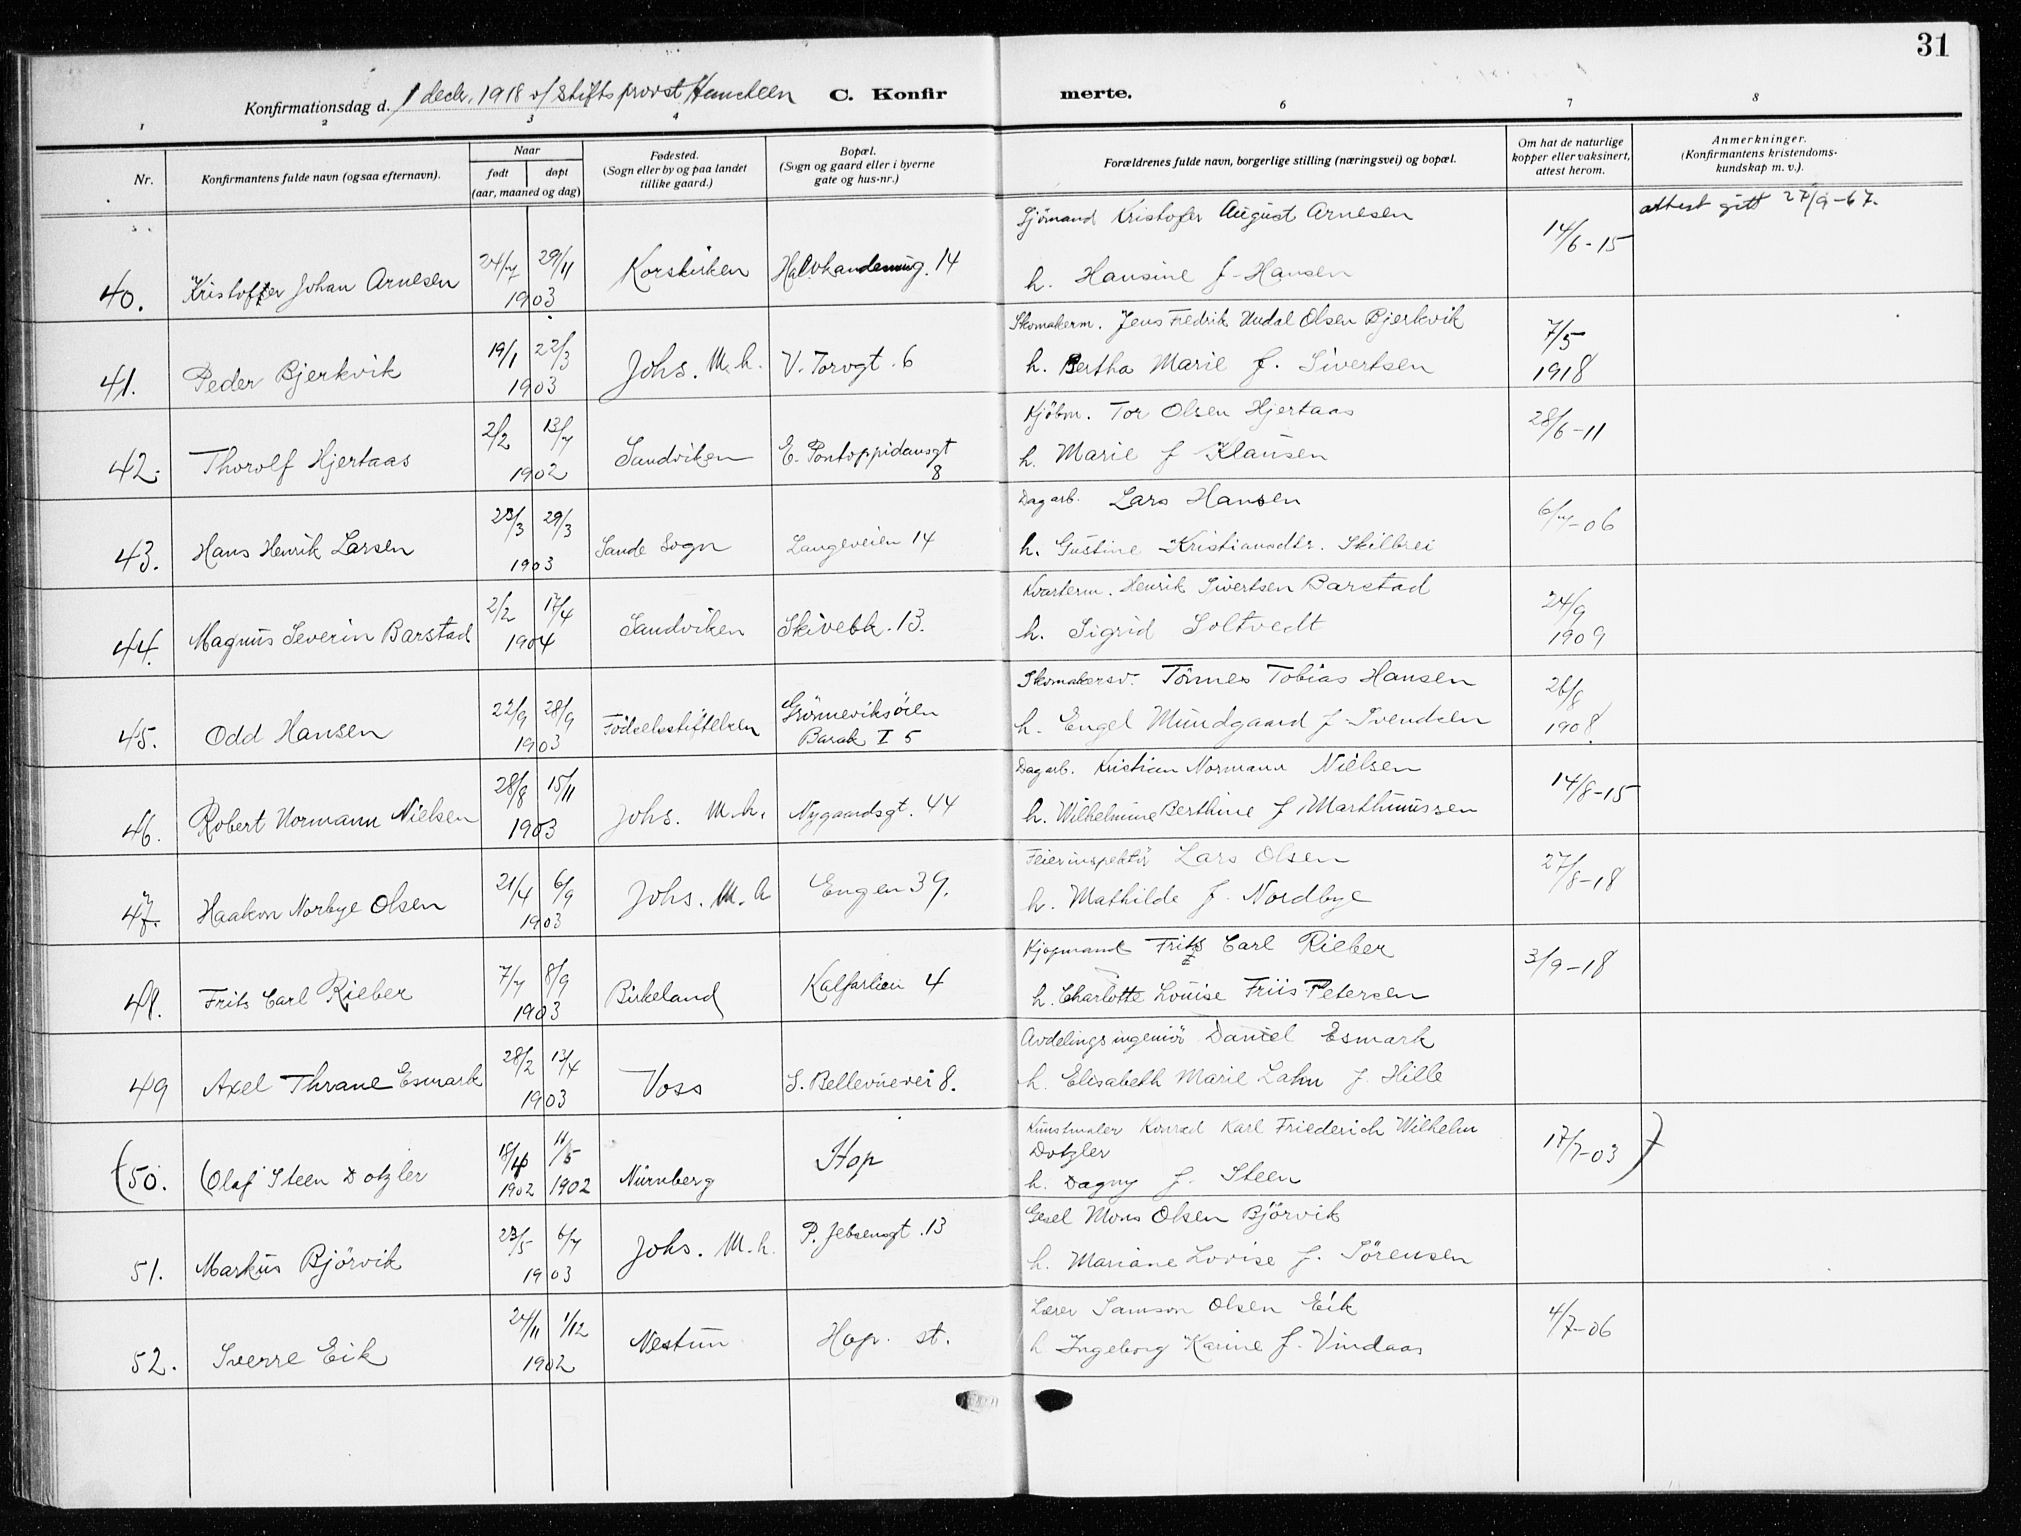 31
Konfirmationsdag d. 1 decbr. 1918 v/ stiftsprovst C. Konfirmerte.
1 2 3 4 6 7 8
Nr.
Konfirmantens fulde navn (ogsaa efternavn).
Naar
født døpt
(aar, maaned og dag)
Fødested.
(Sogn eller by og paa landet
tillike gaard.)
Bopæl.
(Sogn og gaard eller i byerne
gate og hus-nr.)
Forældrenes fulde navn, borgerlige stilling (næringsvei) og bopæl.
Om hat de naturlige
kopper eller vaksinert,
attest herom.
Anmerkninger.
(Konfirmantens kristendoms-
kundskap m. v.).
attest gitt 27/9-67.
Sjömand Kristofer August Arnesen
40. Kristoffer Johan Arnesen 24/7 29/11 1903 Korskirken 14 14/6-15
h. Hansine f. Hansen
Skomakerm. Jens Fredrik Undal Olsen Bjerkvik
41. Peder Bjerkvik 19/1 22/3 1903 Johs. M.k. V. Torvgt. 6 7/5 1918
h. Bertha Marie f. Sivertsen
Kjøbm. Tor Olsen Hjertaas
42. Thorolf Hjertaas 2/2 13/7 1902 Sandviken E. Pontoppidansgt 8 28/6-11
h. Marie f Klausen
Dagarb. Lars Hansen
43. Hans Henrik Larsen 23/3 29/3 1903 Sande Sogn Langeveien 14 6/7-06
h. Gustine Kristiansdtr. Skilbrei
Kvarterm. Henrik Sivertsen Barstad
44. Magnus Severin Barstad 2/2 17/4 1904 Sandviken Skivebk. 13. 24/9 1909
h. Sigrid Soltvedt
Skomakersv. Tönnes Tobias Hansen
45. Odd Hansen 22/9 28/9 1903 Födselsstiftelsen Grönneviksören Barak I 5 26/8 1908
h. Engel Mundgaard f. Svendsen
Dagarb. Kristian Normann Nielsen
46. Robert Normann Nielsen 28/8 15/11 1903 Johs. M.k. Nygaardsgt. 44 14/8-15
h. Wilhelmine Berthine f. Marthinussen
Feierinspektör Lars Olsen
47. Haakon Norbye Olsen 21/4 6/9 1903 Johs. M.k Engen 39. 27/8-18
h. Mathilde f. Nordbye
Kjøpmand Frits Carl Rieber
48. Frits Carl Rieber 7/7 8/9 1903 Birkeland Kalfarlien 4 3/9-18
h. Charlotte Louise Friis-Petersen
Avdelingsingeniör Daniel Esmark
49 Axel Thrane Esmark 28/2 13/4 1903 Voss S. Bellevuevei 8.
h. Elisabeth Marie Lahn f. Hille
Kunstmaler Konrad Karl Friederich Wilhelm
Dotzler
(50. Olaf Steen Dotzler 18/4 1902 11/5 1902 Nürnberg Hop 17/7-03 )
h. Dagny f. Steen
Gesel Mons Olsen Björvik
51. Markus Björvik 23/5 6/7 1903 Johs. M.k. P. Jebsensgt. 13
h. Mariane Lovise f. Sörensen
Lærer Samson Olsen Eik
52. Sverre Eik 24/11 1/12 1902 Nestun Hop. st. 4/7-06
h Ingeborg Karine f. Vindaas